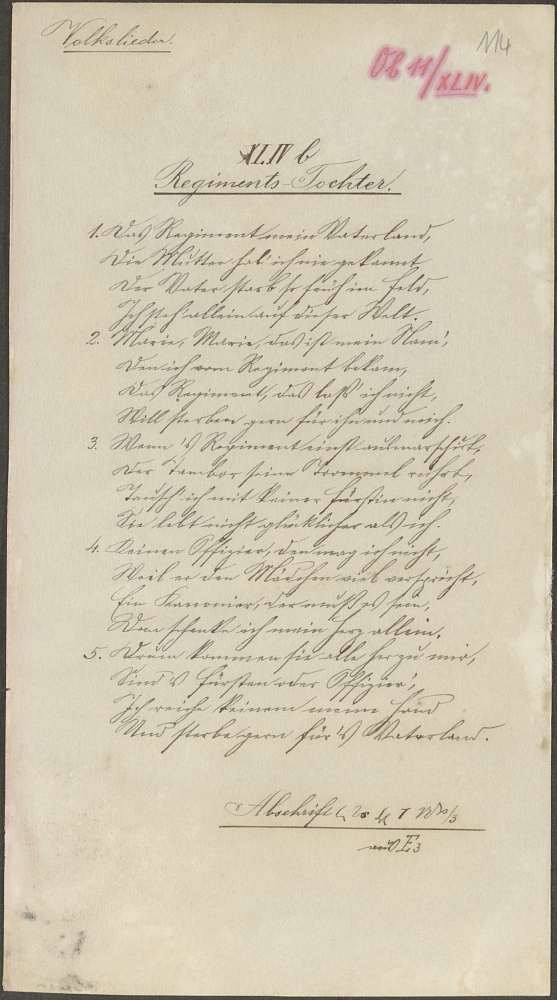 Volkslieder.
114
Ob 11/XLIV.
XLIV b
Regiments-Tochter.
1. Das Regiment mein Vaterland,
Die Mutter hab' ich nie gekannt
Der Vater starb so früh im Feld,
Ich steh' allein auf dieser Welt.
2. Marie, Marie, das ist mein Nam',
Den ich vom Regiment bekam,
Das Regiment, das lass' ich nicht,
Will sterben gern für ihn und mich.
3. Wenn 's Regiment einst ausmarschirt,
Der Tambor seine Trommel rührt,
Tausch' ich mit keiner Fürstin nicht,
Sie lebt nicht glücklicher als ich.
4. Keinen Offizier, den mag ich nicht,
Weil er den Mädchen viel verspricht,
Ein Kanonier, der muß es sein,
Dem schenke ich mein Herz allein.
5. Drum kommen sie alle her zu mir,
Sind's Fürsten oder Offizier',
Ich reiche keinem meine Hand
Und sterbe gern für's Vaterland.
Abschrift